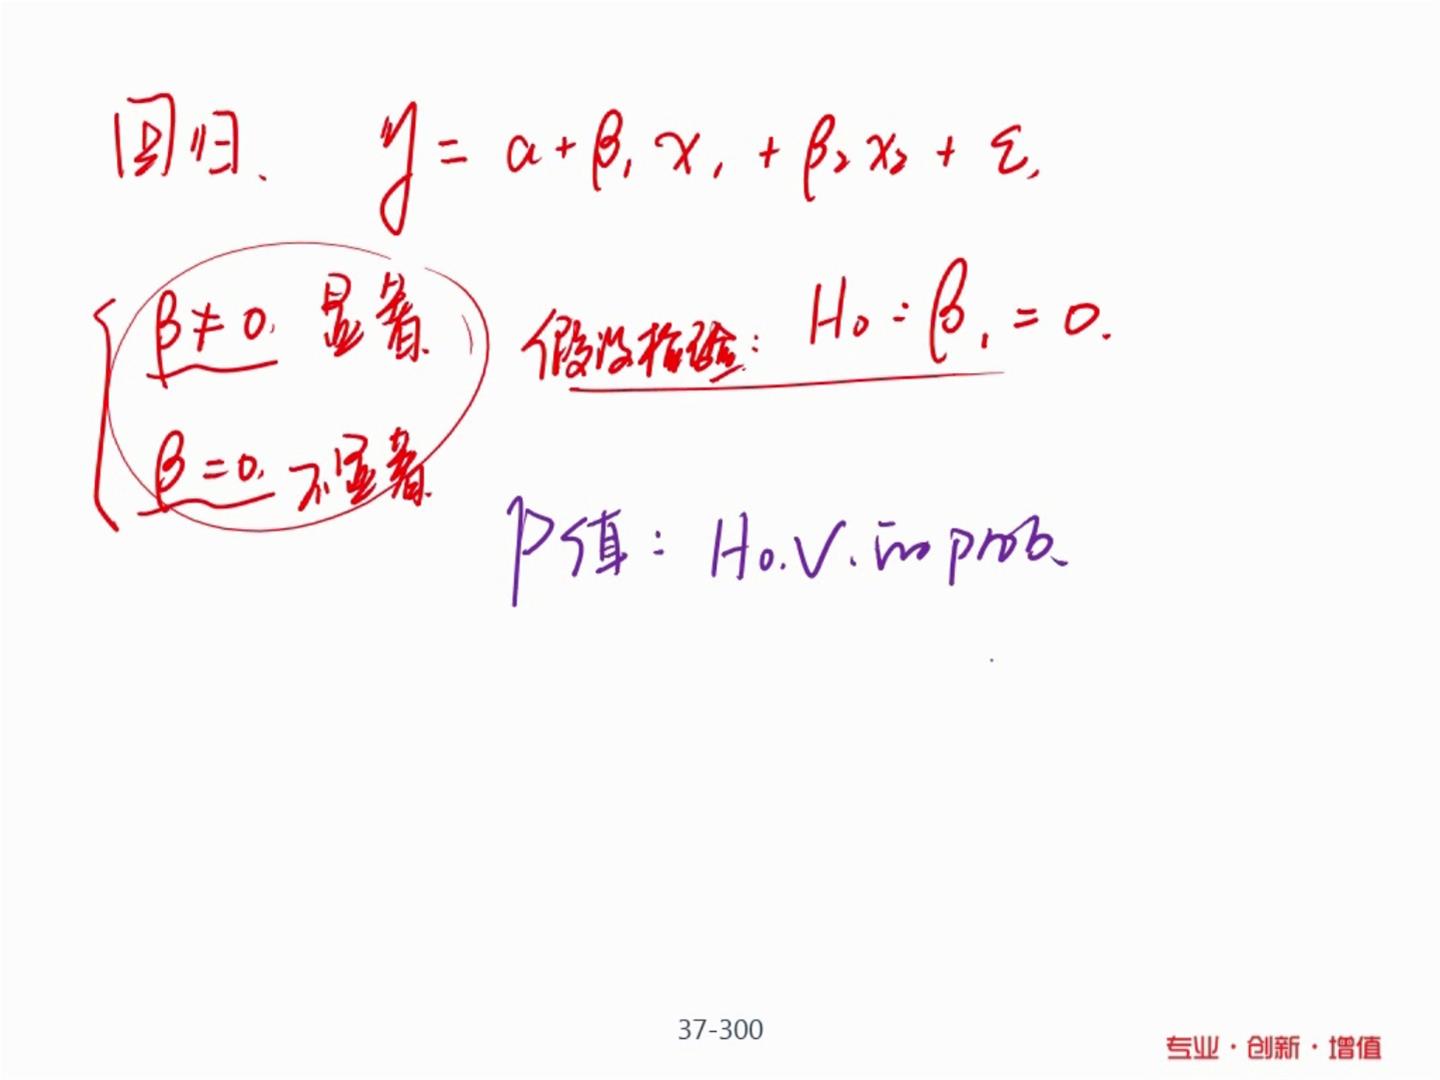 回归. y = α + β₁ x₁ + β₂ x₂ + ε.
β ≠ 0. 显著.
假设检验: H₀: β₁ = 0.
β = 0. 不显著.
P值: H₀.V.的prob.
37-300
专业·创新·增值